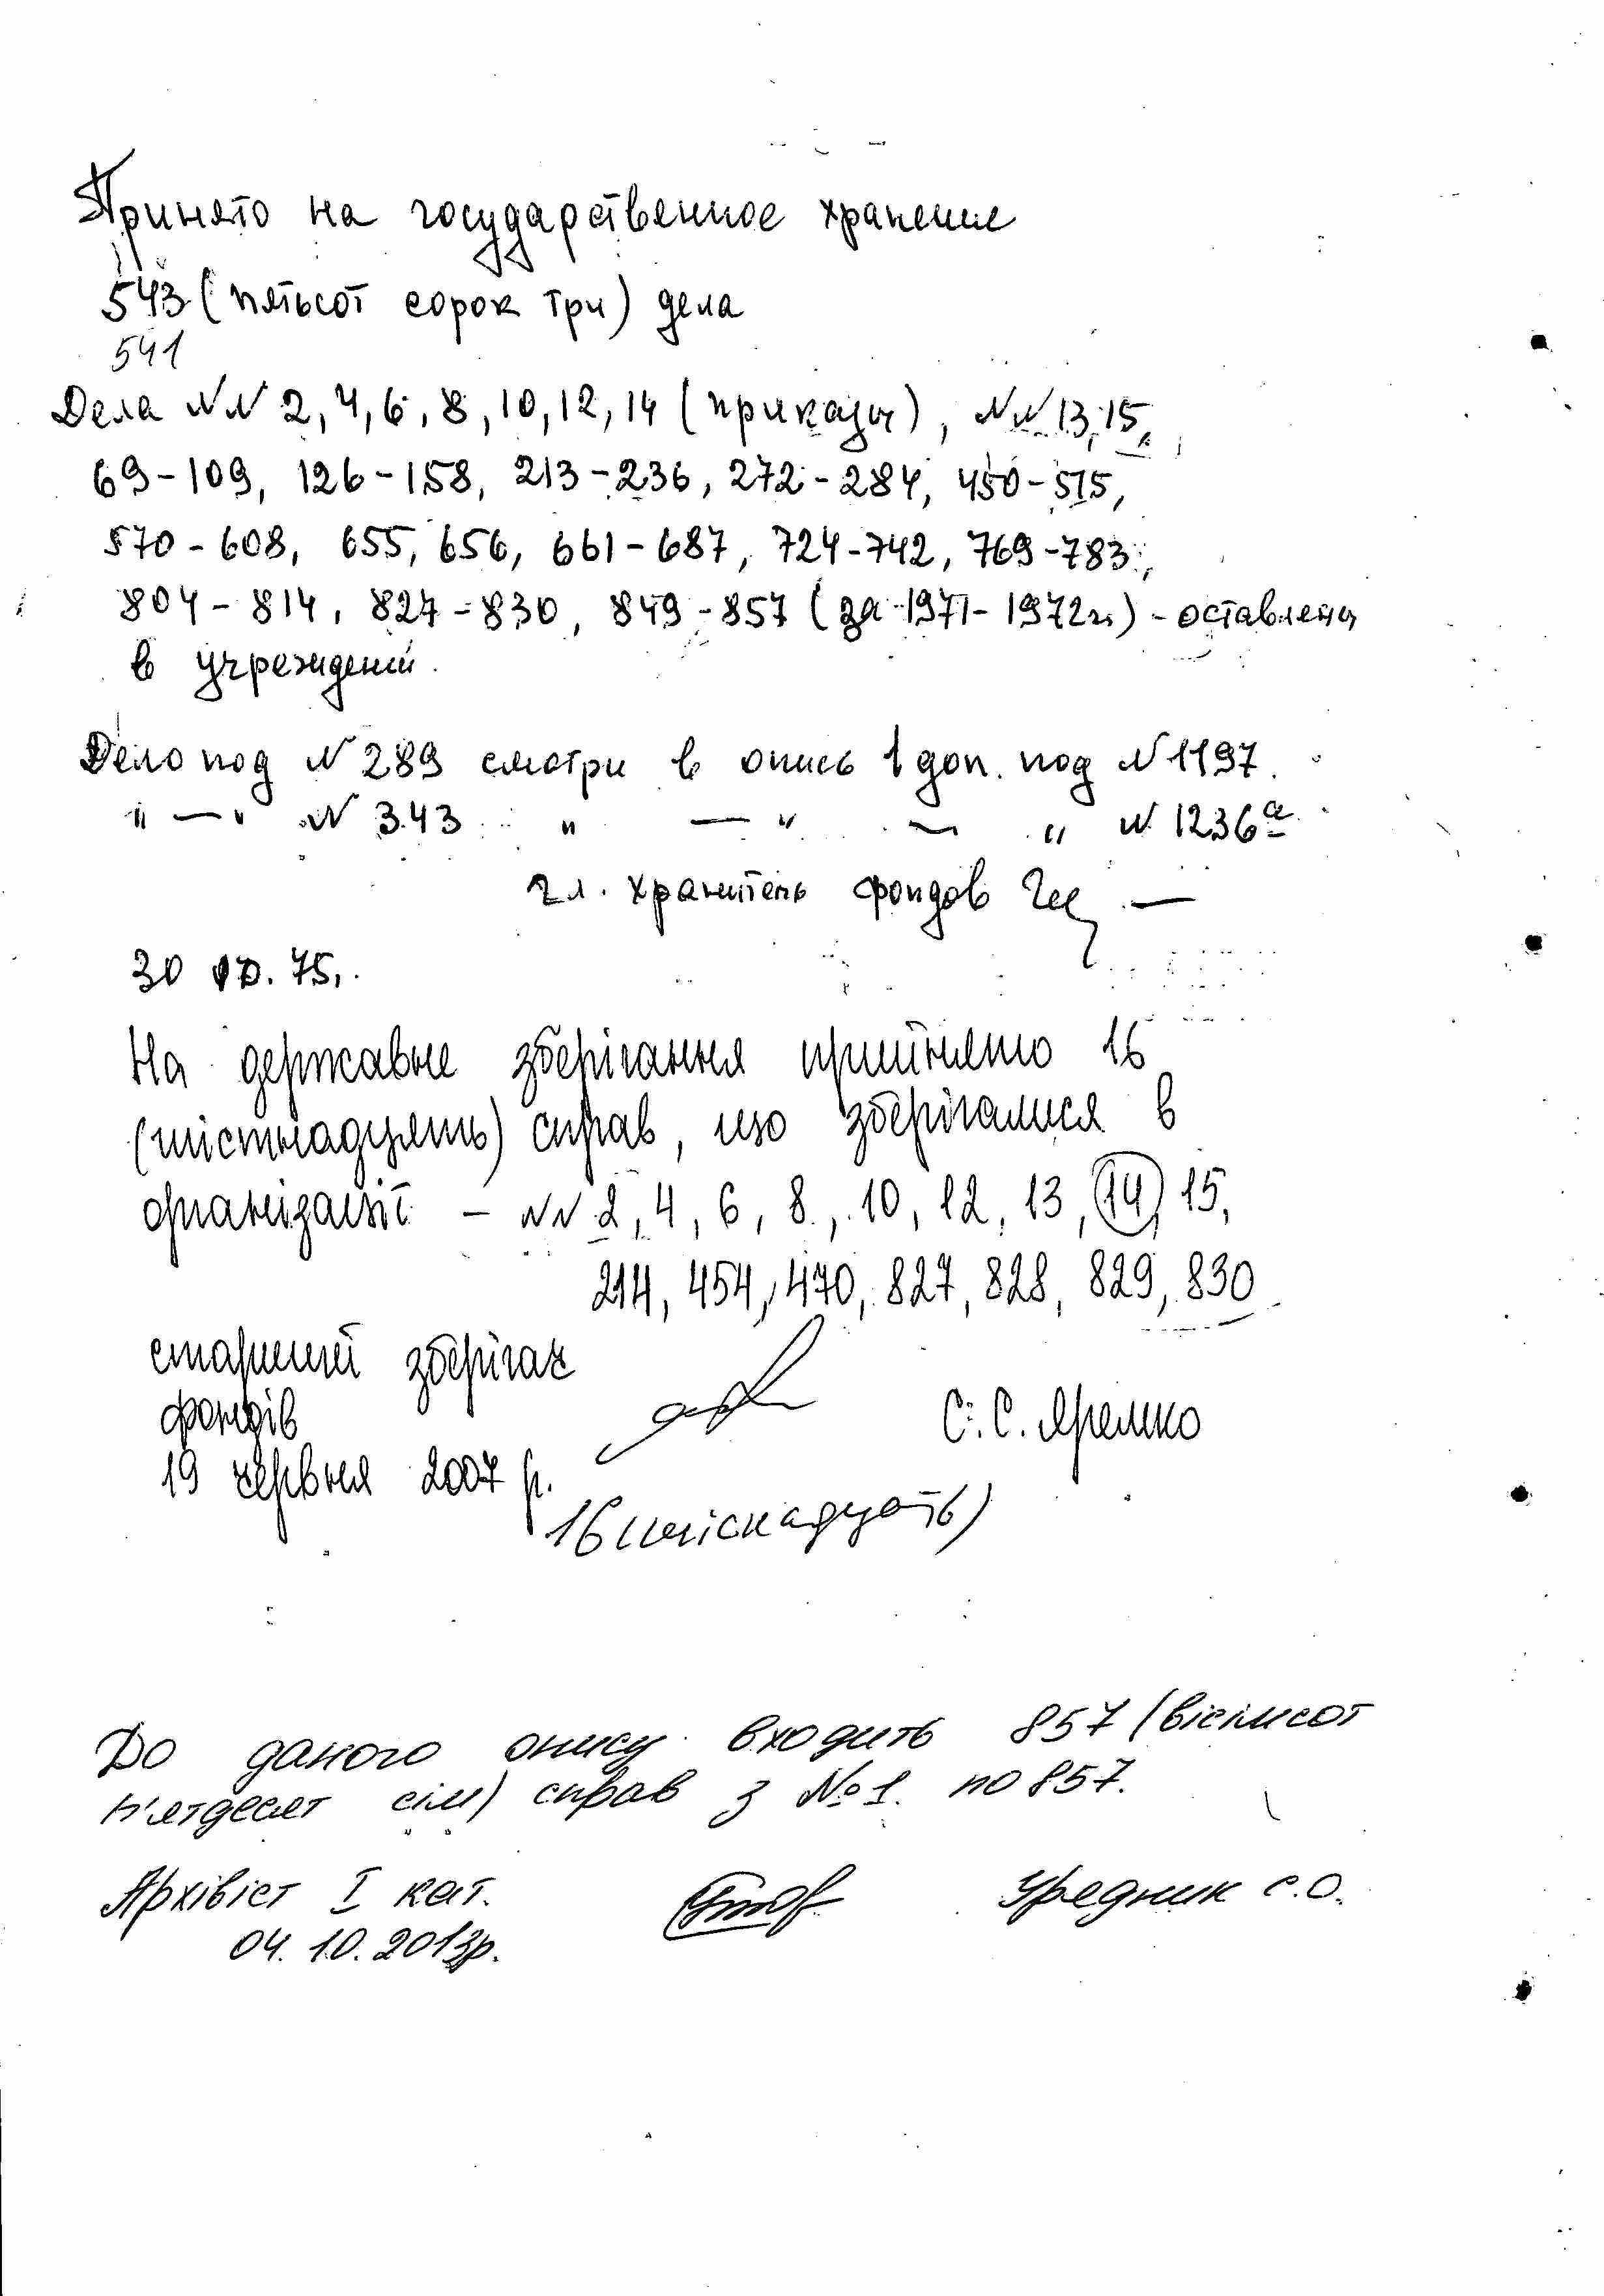 Принято на государственное хранение
543 (пятьсот сорок три) дела
541
Дела NN 2, 4, 6, 8, 10, 12, 14 (приказы), NN 13, 15,
69-109, 126-158, 213-236, 272-284, 450-515,
570-608, 655, 656, 661-687, 724-742, 769-783,
804-814, 827-830, 849-857 (за 1971-1972гг) - оставлены
в учреждении.
Дело под N 289 смотри в опись 1 доп. под N 1197.
"—" N 343 " — " — " N 1236а
Гл. хранитель фондов
30 10. 75.
На державне зберігання прийнято 16
(шістнадцять) справ, що зберігалися в
організації - NN 2, 4, 6, 8, 10, 12, 13, 14, 15,
214, 454, 470, 827, 828, 829, 830
старший зберігач
фондів С.С. Яремко
19 червня 2007 р.
16 (шіснадцять)
До даного опису входить 857 (вісімсот
п'ятдесят сім) справ з №1 по 857.
Архівіст I кат. Урядник С.О.
04.10.2013р.